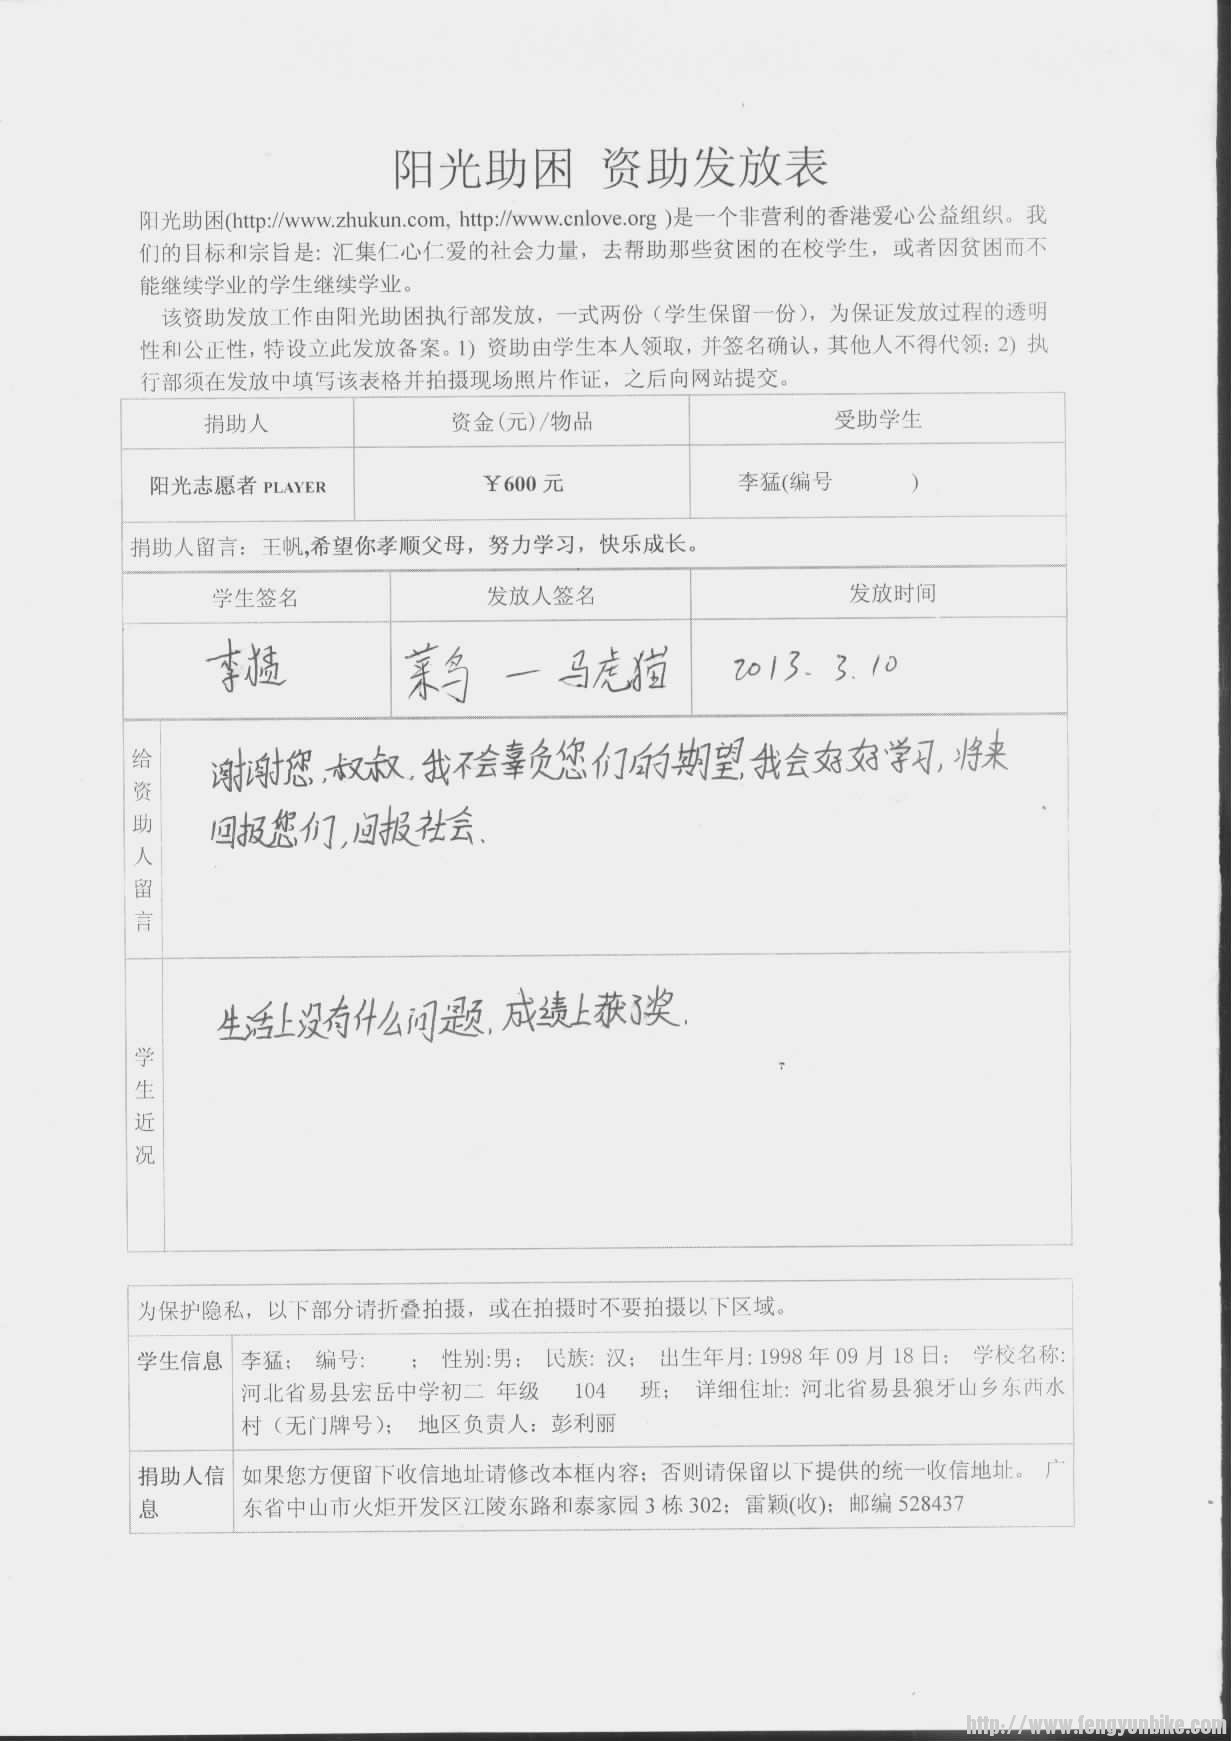 阳光助困 资助发放表
阳光助困(http://www.zhukun.com, http://www.cnlove.org )是一个非营利的香港爱心公益组织。我
们的目标和宗旨是: 汇集仁心仁爱的社会力量，去帮助那些贫困的在校学生，或者因贫困而不
能继续学业的学生继续学业。
该资助发放工作由阳光助困执行部发放，一式两份（学生保留一份），为保证发放过程的透明
性和公正性, 特设立此发放备案。1) 资助由学生本人领取, 并签名确认, 其他人不得代领; 2) 执
行部须在发放中填写该表格并拍摄现场照片作证，之后向网站提交。
捐助人 资金(元)/物品 受助学生
阳光志愿者 PLAYER ￥600 元 李猛(编号 )
捐助人留言：王帆,希望你孝顺父母，努力学习，快乐成长。
学生签名 发放人签名 发放时间
李猛 菜鸟 — 马虎猫 2013. 3. 10
给资助人留言
谢谢您,叔叔,我不会辜负您们的期望,我会好好学习,将来
回报您们,回报社会.
学生近况
生活上没有什么问题,成绩上获了奖.
为保护隐私，以下部分请折叠拍摄，或在拍摄时不要拍摄以下区域。
学生信息 李猛; 编号: ; 性别:男; 民族: 汉; 出生年月: 1998 年 09 月 18 日; 学校名称:
河北省易县宏岳中学初二 年级 104 班; 详细住址: 河北省易县狼牙山乡东西水
村（无门牌号); 地区负责人：彭利丽
捐助人信息 如果您方便留下收信地址请修改本框内容；否则请保留以下提供的统一收信地址。 广
东省中山市火炬开发区江陵东路和泰家园 3 栋 302；雷颖(收)；邮编 528437
http://www.fengyunbike.com